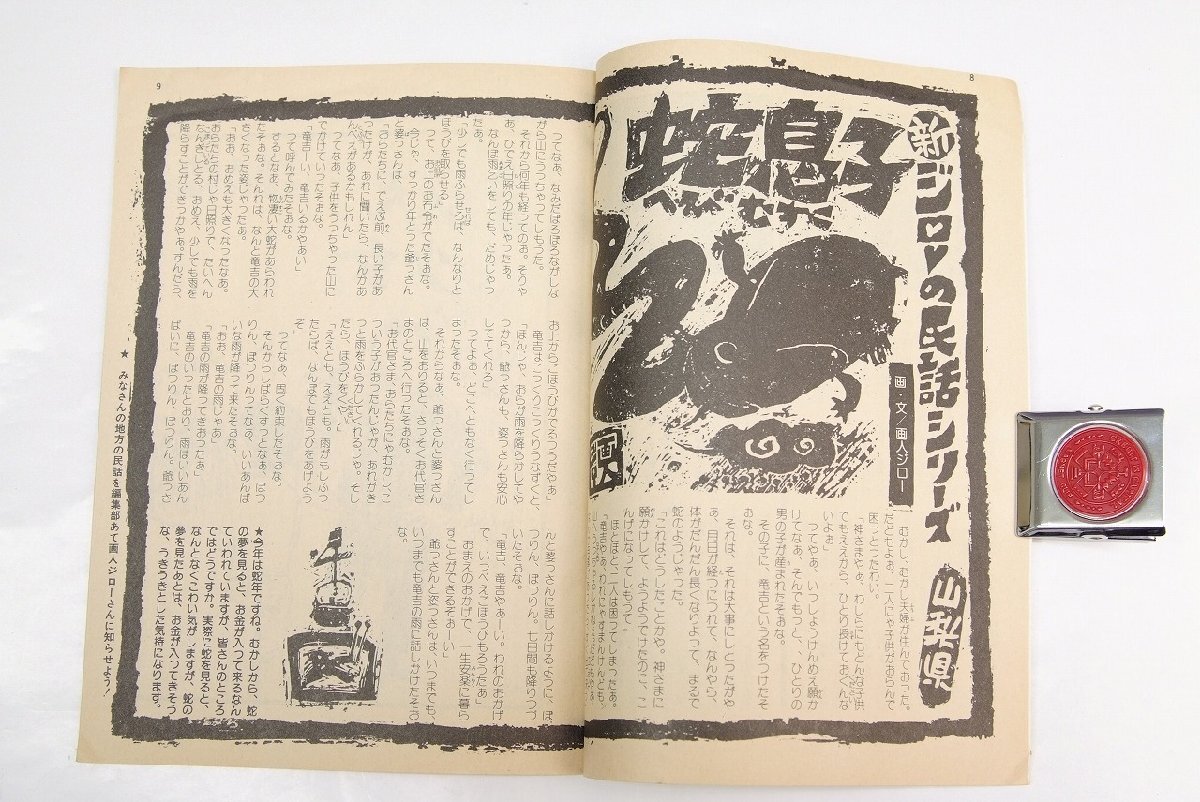 8
新ジローの民話シリーズ
山梨県
蛇息子
へびむすこ
画・文 画人ジロー
むかし、むかし夫婦が住んでおった。
だどもよぉ、二人にゃ子供がおらんで
困っとったわい。
「神さまやぁ。わしらにもどんな子供
でもええから、ひとり授けておくんな
いよぉ」
つってやぁ、いっしょうけんめえ願か
けてなぁ、そんでもっと、ひとりの
男の子が産まれたそぉな。
その子に、竜吉という名をつけたそ
おな。
それは、それは大事にしとったがや
ぁ、月日が経つにつれて、なんやら、
体がだんだん長くなりよって、まるで
蛇のようじゃった。
「これはどうしたことかや。神さまに
願かけして、ようよう
んげになってしもうて」
ほとほと、二人は困ってしまったぁ。
9
つってなぁ、なみだぼろぼろながしな
がら山にうっちゃってしもうた。
それから何年も経ってのぉ。そりゃ
あ、ひでえ日照りの年じゃったぁ。
なんぼ雨乞いをっても、だめじゃっ
たぁ。
「少しでも雨ふらせろば、なんなりと
ほうびを取らせる
って、お上のお布令がでたそぉな。
今じゃ、すっかり年とった爺っさん
と婆っさんは、
「おらたちに、でえぶ前、長い子があ
ったけが、あれに聞いたら、なんかあ
んべえがあるかもしれん」
つってなあ、子供をうっちゃった山に
でかけていったそぉな。
「竜吉ーい、竜吉いるかやあい」
って呼んでみたそぉな。
するとなあ、物凄い大蛇があらわれ
たそぉな。それれは、なんと竜吉の大
きくなった姿じゃったぁ。
「おお、おめえも大きくなったなあ。
おらたちの村じゃ日照りで、たいへん
なんぎしとる、おめえ、少しでも雨を
降らすことができっかやあ。すんだら、
お上からごほうびがでるっうだゃぁ」
竜吉はこっくりこっくりうなずくと、
「ほんじゃ、おらが雨を降らかしてや
つから、爺っさんも、婆っさんも安心
してしてくれろ」
ってよぉ、どこへともなく行ってし
まったそぉな。
それからなぁ、爺っさんと婆っさん
は、山をおりると、さっそくお代官さ
まのところへ行ったそぉな。
「お代官さま、おらたちにゃむかし、こ
ういう子がおったんじゃが、あれがき
っと雨をふらかしてくれるっや。そし
たら、ほうびをくや」
「ええとも、ええとも。雨がもしふっ
たらば、なんでもほうびをあげよう
ぞ」
ってなあ、固く約束したそぉな。
そんから、しばらくすっとなあ、ぽっ
りん、ぽつりんってなあ、いいあんば
いな雨が降って来たそぉな。
「おお、竜吉の雨じゃあ」
「竜吉の雨が降ってきおったぁ」
竜吉のいったとおり、雨はいいあん
ばいに、ぽつりん、ぽつりん。爺っさ
んと婆っさんに話しかけるように、ぽ
つりん、ぽつりん。七日間も降りつづ
いたそぉな。
「竜吉、竜吉やぁーい。われのおかげ
で、いっぺえごほうびもろうたぁ」
「おまえのおかげで、一生安楽に暮ら
すことができるぞぉーい」
爺っさんと婆っさんは、いつまでも、
いつまでも竜吉の雨に話しかけたそう
な。
★今年は蛇年ですね。むかしから、蛇
の夢を見ると、お金が入って来るなん
ていわれていますが、皆さんのところ
ではどうですか。実際に蛇を見ると、
なんとなくこわい気がしますが、蛇の
夢を見ためとは、お金が入ってきそう
な、うきうきとした気持になります。
★ みなさんの地方の民話を編集部あて画人ジローさんに知らせよう!